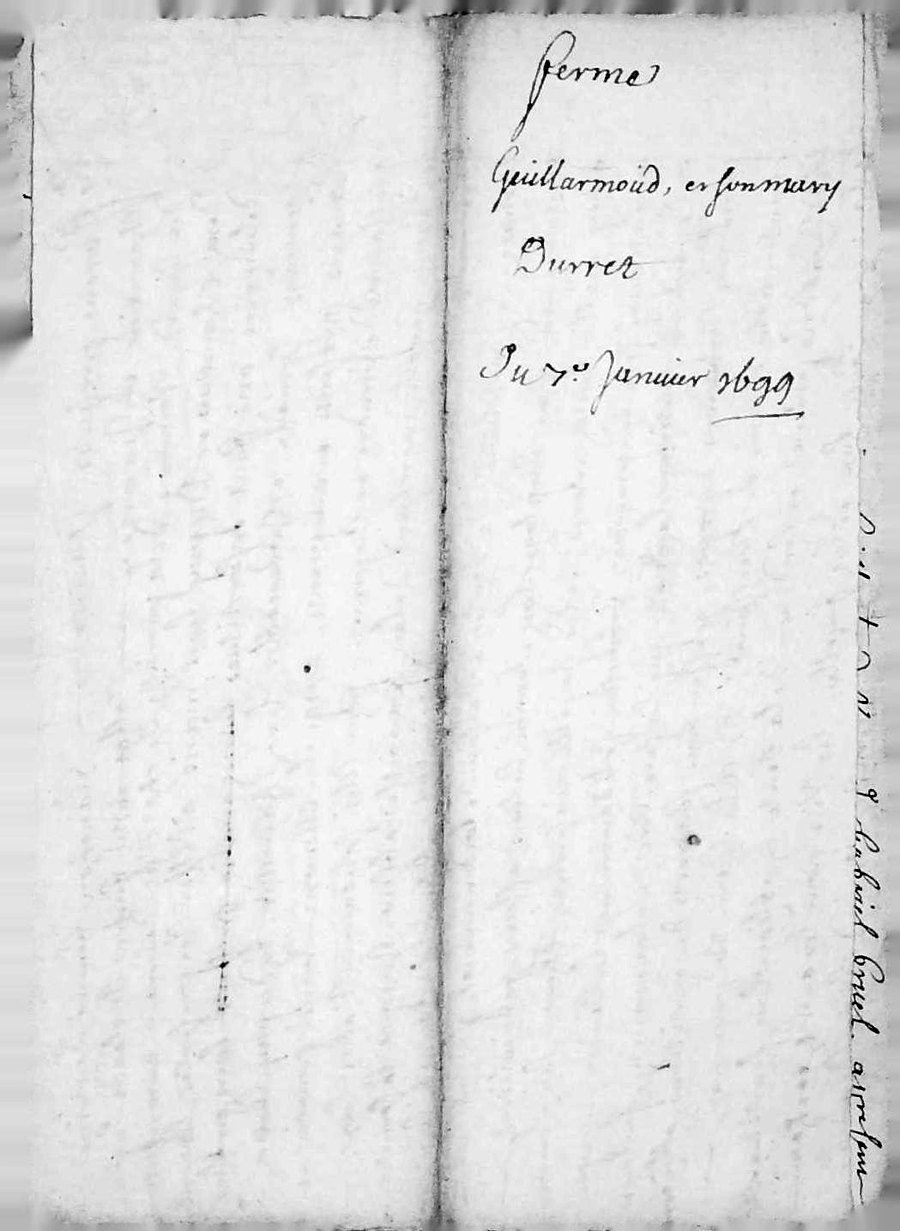 ferme
Guillarmoud, et son mary
Burret
Du 7e Janvier 1699
gabriel bruel